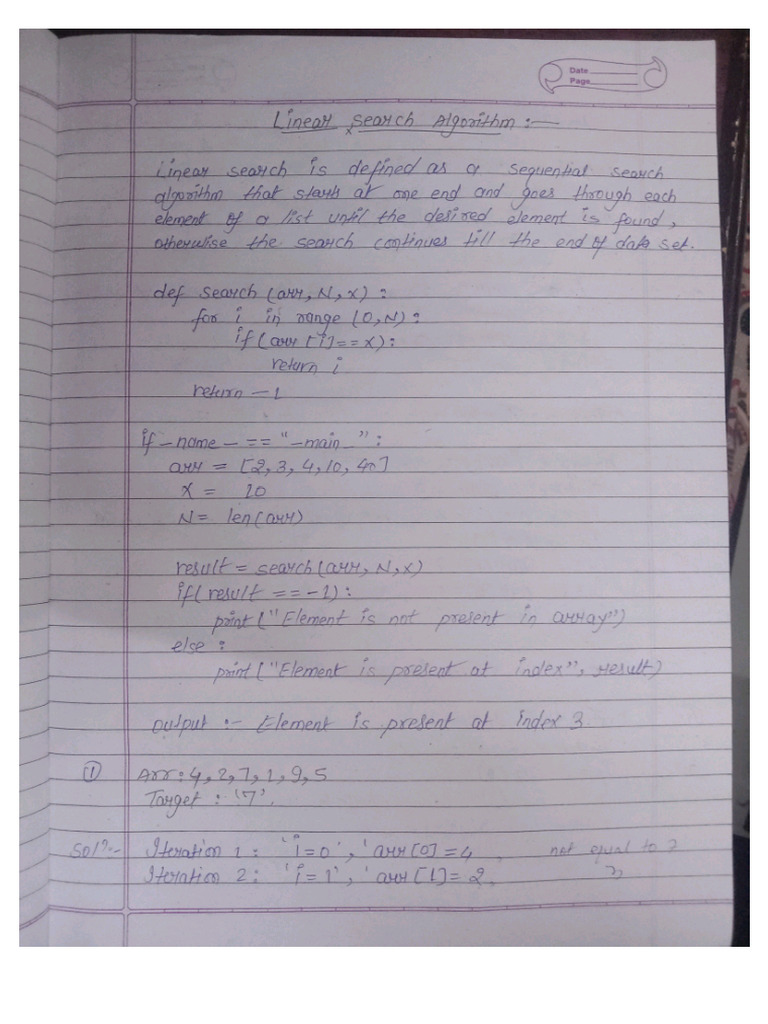 Date
Page
Linear Search Algorithm :-
Linear search is defined as a sequential search
algorithm that starts at one end and goes through each
element of a list until the desired element is found,
otherwise the search continues till the end of data set.
def search (arr, N, x) :
for i in range (0, N) :
if (arr [i] == x) :
return i
return -1
if _name_ == "_main_" :
arr = [2, 3, 4, 10, 40]
X = 10
N = len(arr)
result = search (arr, N, x)
if( result == -1) :
print ("Element is not present in array")
else :
print ("Element is present at index", result)
Output :- Element is present at index 3.
① Arr : 4, 2, 7, 1, 9, 5
Target : '7'.
Soln:- Iteration 1 : 'i=0', 'arr[0] = 4, not equal to 7
Iteration 2 : 'i=1', 'arr [1] = 2, "